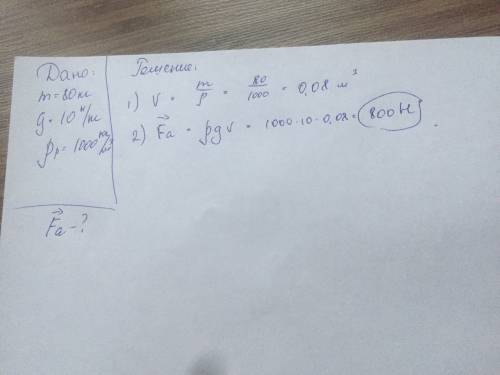 Дано:
m = 80 кг
g = 10 н/кг
ρр = 1000 кг/м³
F⃗a - ?
Решение:
1) V = m/ρ = 80/1000 = 0,08 м³
2) F⃗a = ρgv = 1000·10·0,08 = 800 Н.